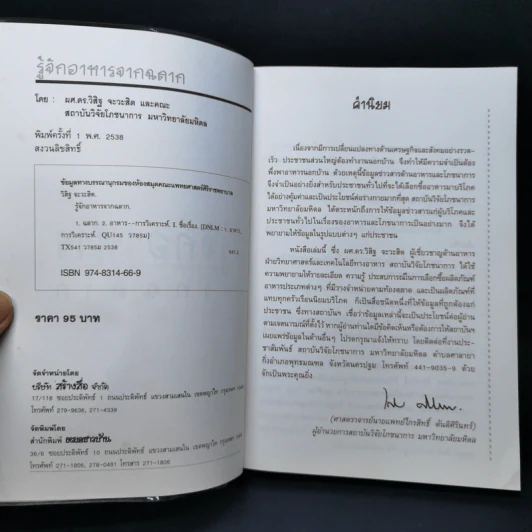 รู้จักอาหารจากฉลาก
โดย : ผศ.ดร.วิสิฐ จะวะสิต และคณะ
สถาบันวิจัยโภชนาการ มหาวิทยาลัยมหิดล
พิมพ์ครั้งที่ 1 พ.ศ. 2538
สงวนลิขสิทธิ์
ข้อมูลทางบรรณานุกรมของห้องสมุดคณะแพทยศาสตร์ศิริราชพยาบาล
วิสิฐ จะวะสิต.
รู้จักอาหารจากฉลาก.
1. ฉลาก. 2. อาหาร--การวิเคราะห์. I. ชื่อเรื่อง. [DNLM : 1. อาหาร,
การวิเคราะห์. QU145 ว785ม]
TX541 ว785ม 2538
ISBN 974-8314-66-9
ราคา 95 บาท
จัดจำหน่ายโดย
บริษัท สร้างสื่อ จำกัด
17/118 ซอยประดิพัทธ์ 1 ถนนประดิพัทธ์ แขวงสามเสนใน เขตพญาไท กรุงเทพฯ
โทรศัพท์ 279-9636, 271-4339
จัดพิมพ์โดย
สำนักพิมพ์ หมอชาวบ้าน
36/6 ซอยประดิพัทธ์ 10 ถนนประดิพัทธ์ แขวงสามเสนใน เขตพญาไท
โทรศัพท์ 271-1806, 278-0491 โทรสาร 271-1806
คำนิยม
เนื่องจากมีการเปลี่ยนแปลงทางด้านเศรษฐกิจและสังคมอย่างรวด-
เร็ว ประชาชนส่วนใหญ่ต้องทำงานนอกบ้าน จึงทำให้มีความจำเป็นต้อง
พึ่งพาอาหารนอกบ้าน ด้วยเหตุนี้ข้อมูลข่าวสารด้านอาหารและโภชนาการ
จึงจำเป็นอย่างยิ่งสำหรับประชาชนทั่วไปที่จะได้เลือกซื้ออาหารมาบริโภค
ได้อย่างคุ้มค่าและเป็นประโยชน์ต่อร่างกายมากที่สุด สถาบันวิจัยโภชนาการ
มหาวิทยาลัยมหิดล ได้ตระหนักถึงการให้ข้อมูลข่าวสารแก่ผู้บริโภคและ
ประชาชนทั่วไปในเรื่องของอาหารและโภชนาการเป็นอย่างมาก จึงได้
พยายามให้ข้อมูลในรูปแบบต่างๆ แก่ประชาชน
หนังสือเล่มนี้ ซึ่ง ผศ.ดร.วิสิฐ จะวะสิต ผู้เชี่ยวชาญด้านอาหาร
ฝ่ายวิทยาศาสตร์และเทคโนโลยีทางอาหาร สถาบันวิจัยโภชนาการ ได้ใช้
ความพยายามให้รายละเอียด ความรู้ ประสบการณ์ในการเลือกซื้อผลิตภัณฑ์
อาหารประเภทต่างๆ ที่มีวางจำหน่ายตามท้องตลาด และเป็นผลิตภัณฑ์ที่
แทบทุกครัวเรือนนิยมบริโภค ก็เป็นสื่อชนิดหนึ่งที่ให้ข้อมูลที่ถูกต้องแก่
ประชาชน ซึ่งทางสถาบันฯ เชื่อว่าข้อมูลเหล่านี้จะเป็นประโยชน์ต่อผู้อ่าน
ตามเจตนารมณ์ที่ตั้งไว้ หากผู้อ่านท่านใดมีข้อคิดเห็นหรือต้องการให้สถาบันฯ
เผยแพร่ข้อมูลในด้านอื่นๆ โปรดกรุณาแจ้งให้ทราบ โดยติดต่อที่งานประ-
ชาสัมพันธ์ สถาบันวิจัยโภชนาการ มหาวิทยาลัยมหิดล ตำบลศาลายา
กิ่งอำเภอพุทธมณฑล จังหวัดนครปฐม โทรศัพท์ 441-9035-9 ด้วย
จักเป็นพระคุณยิ่ง
(ศาสตราจารย์นายแพทย์ไกรสิทธิ์ ตันติศิรินทร์)
ผู้อำนวยการสถาบันวิจัยโภชนาการ มหาวิทยาลัยมหิดล